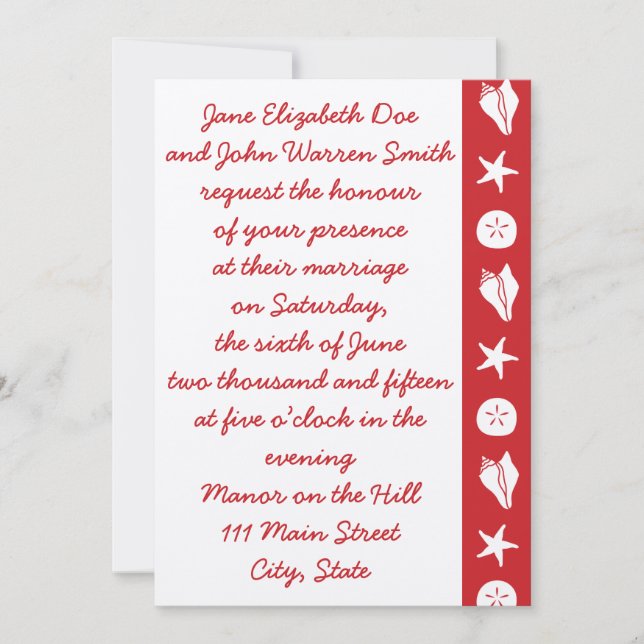 Jane Elizabeth Doe
and John Warren Smith
request the honour
of your presence
at their marriage
on Saturday,
the sixth of June
two thousand and fifteen
at five o'clock in the
evening
Manor on the Hill
111 Main Street
City, State